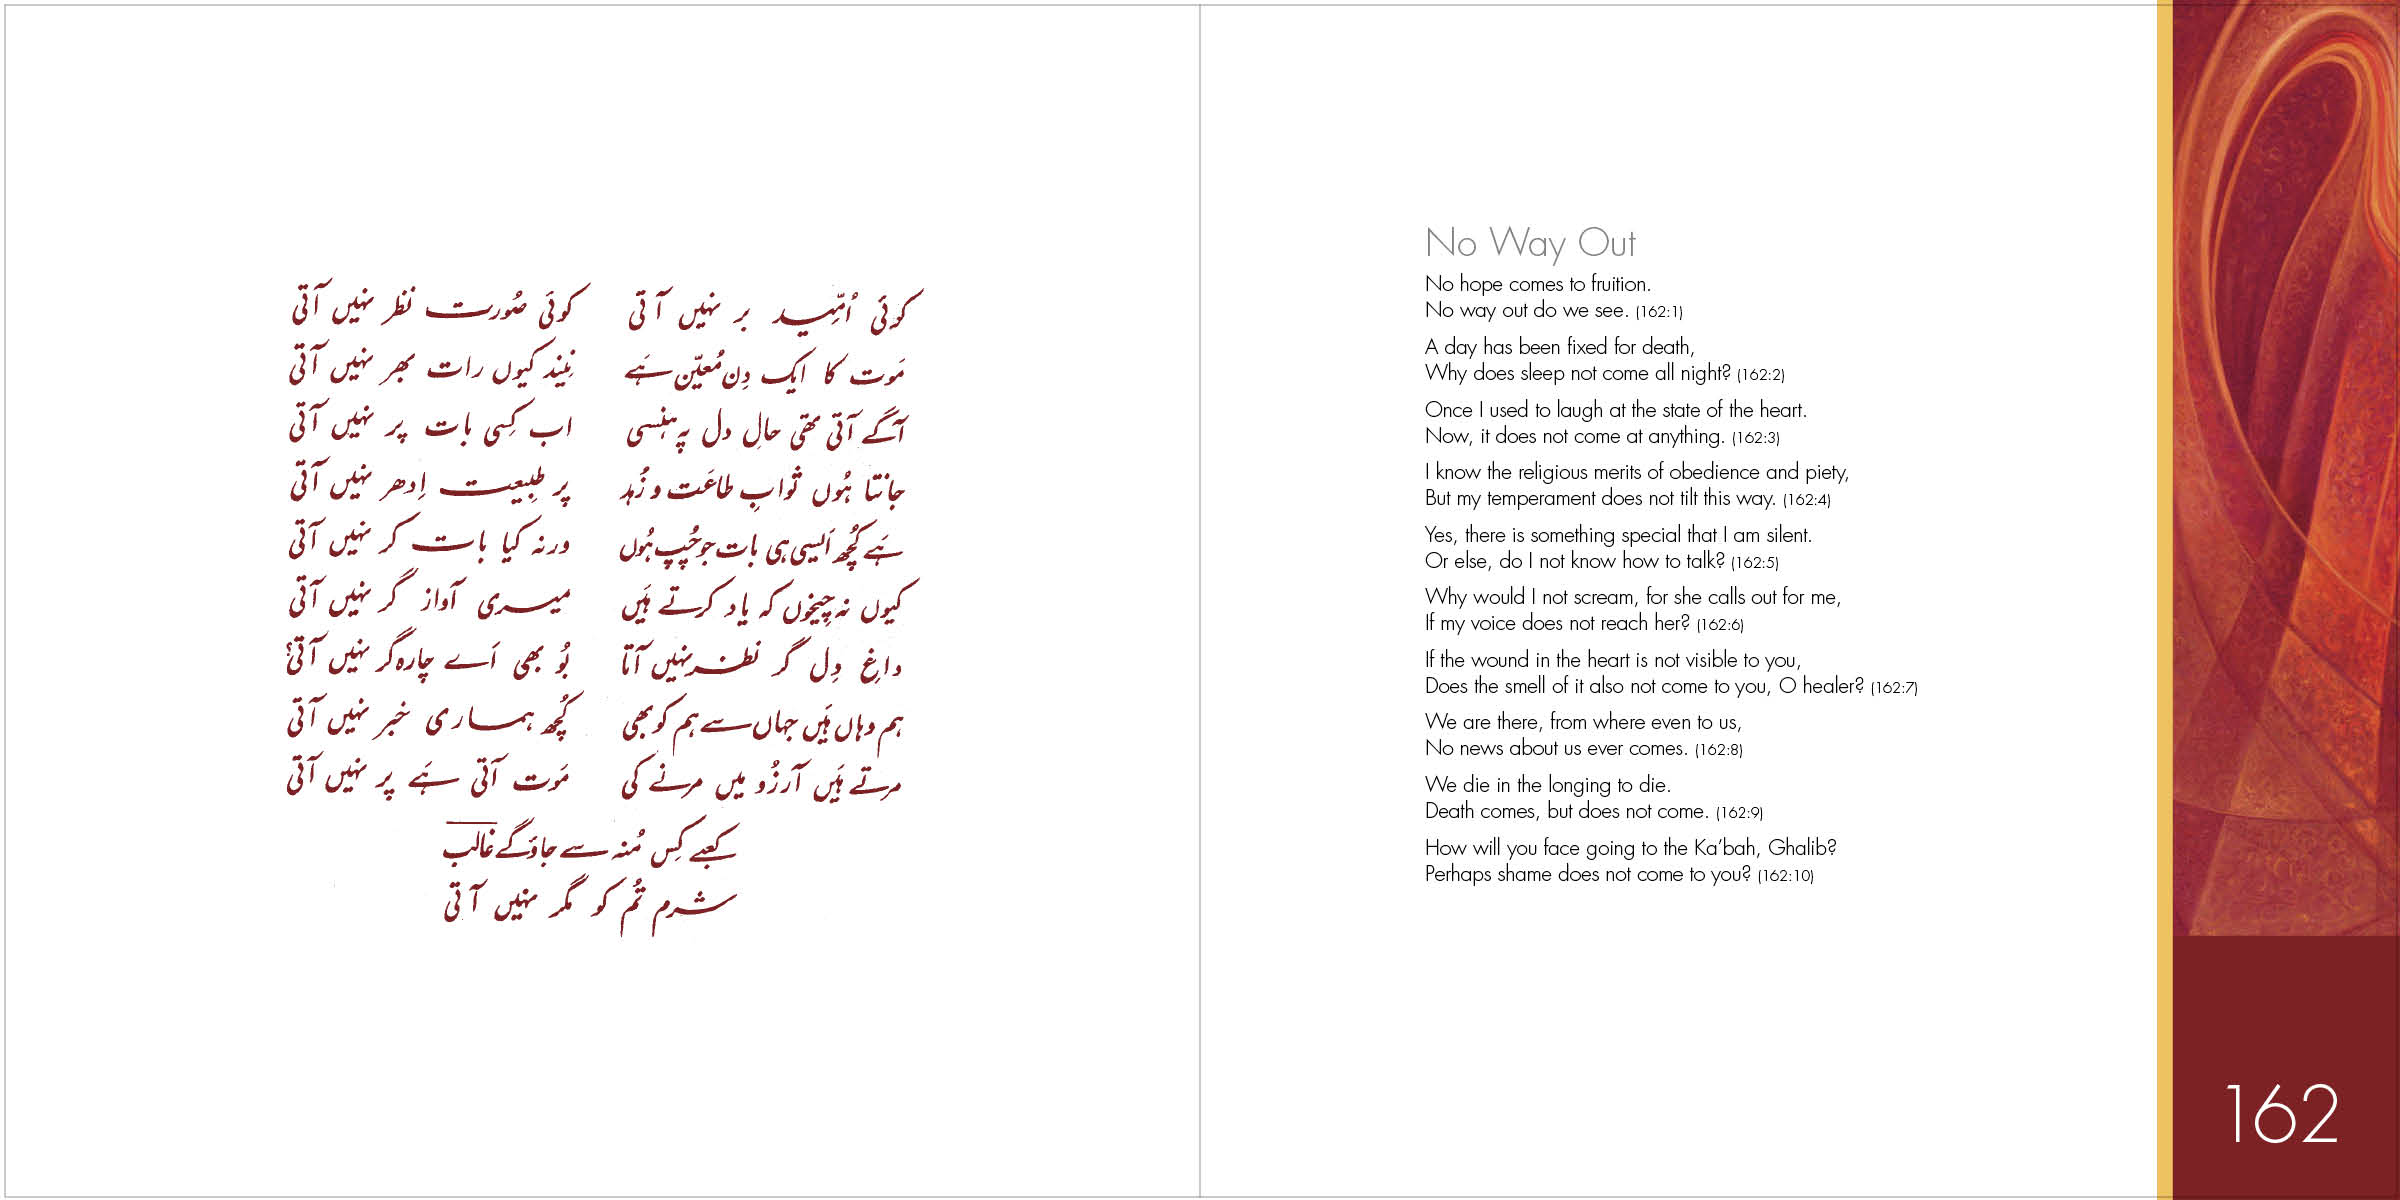 کوئی اُمّید بر نہیں آتی کوئی صُورت نظر نہیں آتی
مَوت کا ایک دِن مُعیّن ہَے نِیند کیوں رات بھر نہیں آتی
آگے آتی تھی حالِ دل پہ ہنسی اب کِسی بات پر نہیں آتی
جانتا ہُوں ثوابِ طاعَت و زُہد پر طبِیعت اِدھر نہیں آتی
ہَے کُچھ اَیسی ہی بات جو چُپ ہُوں ورنہ کیا بات کر نہیں آتی
کیوں نہ چِیخوں کہ یاد کرتے ہَیں میری آواز گر نہیں آتی
داغِ دِل گر نظر نہیں آتا بُو بھی اَے چارہ گر نہیں آتی؟
ہم وہاں ہَیں جہاں سے ہم کو بھی کُچھ ہماری خبر نہیں آتی
مرتے ہَیں آرزُو میں مرنے کی مَوت آتی ہَے پر نہیں آتی
کعبے کِس مُنہ سے جاؤگے غالب
شرم تُم کو مگر نہیں آتی
No Way Out
No hope comes to fruition.
No way out do we see. (162:1)
A day has been fixed for death,
Why does sleep not come all night? (162:2)
Once I used to laugh at the state of the heart.
Now, it does not come at anything. (162:3)
I know the religious merits of obedience and piety,
But my temperament does not tilt this way. (162:4)
Yes, there is something special that I am silent.
Or else, do I not know how to talk? (162:5)
Why would I not scream, for she calls out for me,
If my voice does not reach her? (162:6)
If the wound in the heart is not visible to you,
Does the smell of it also not come to you, O healer? (162:7)
We are there, from where even to us,
No news about us ever comes. (162:8)
We die in the longing to die.
Death comes, but does not come. (162:9)
How will you face going to the Ka’bah, Ghalib?
Perhaps shame does not come to you? (162:10)
162